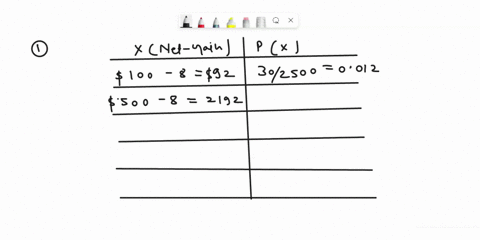 ①
X (Net-gain) P(x)
$100 - 8 = $92 30/2500 = 0.012
$.500 - 8 = 2192